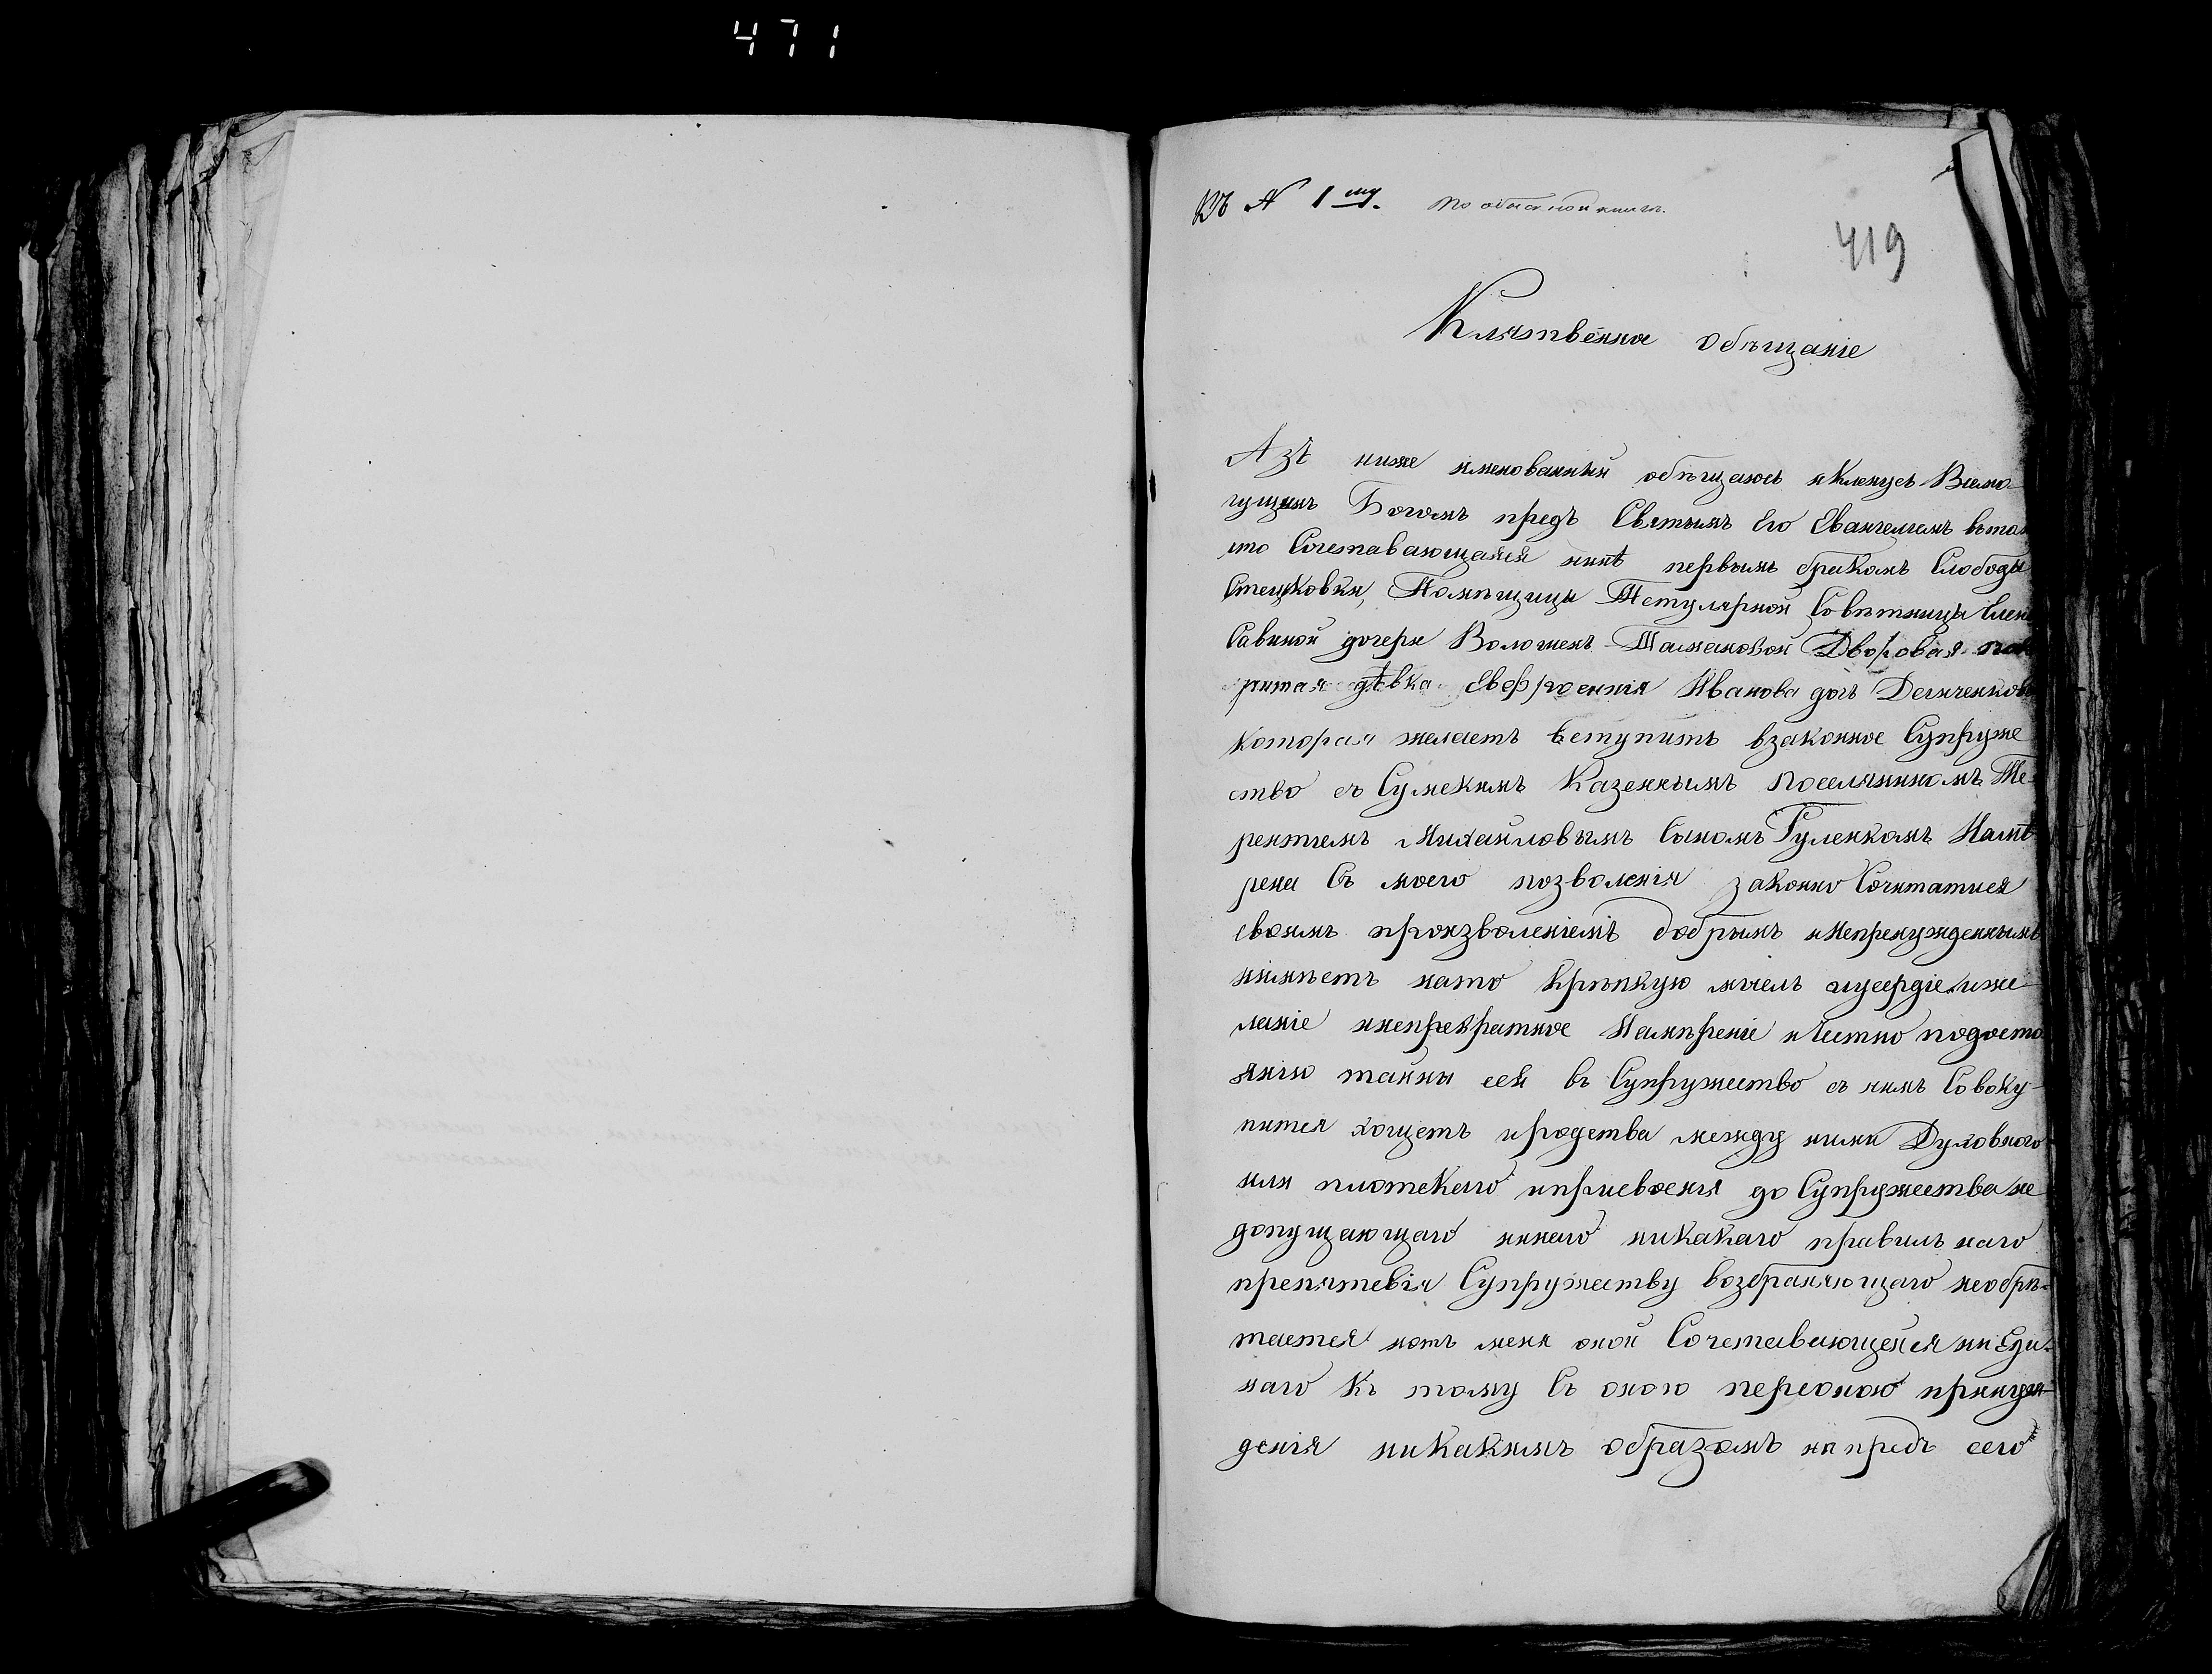 471
Къ № 1му. По обыскной книгѣ.
419
Клятвенное обѣщаніе
Азъ ниже именованный обѣщаюсь иКленусь Всемо-
гущимъ Богомъ предъ Святымъ Его Евангелiемъ втом
что Сочетавающаяся нинѣ первымъ бракомъ Слободы
Стецковки, Помѣщицы Тетулярной Совѣтницы Елены
Савиной дочери Воложен Дворовая
дѣвка Евфросинiя Иванова дочь Демченкова
которая желаетъ вступить взаконное Супруже
ство съ Сумскимъ Казеннымъ поселяниномъ Те-
рентiемъ Михайловымъ Сыномъ Гуленкомъ Намѣ
рена Съ моего позволенiя законно Сочитатися
своимъ произволенiемъ добрымъ иНепренужденнымъ
иимѣетъ нато крѣпкую мысль иусердiе иже-
ланiе инепревратное Намѣренiе иЧестно подосто
янiю тайны сея въ Супружество съ нимъ Совоку-
питися хощетъ иродства между ними Духовного
или плотскаго иприсвоенiя до Супружества не
допущающаго инаго никакаго правильнаго
препятствiя Супружеству возбраняющаго необрѣ-
тается иотъ меня оной Сочетавающейся ниЕди-
наго къ тому Съ оною персоною принуж-
денiя никакимъ образомъ нипредъ сего